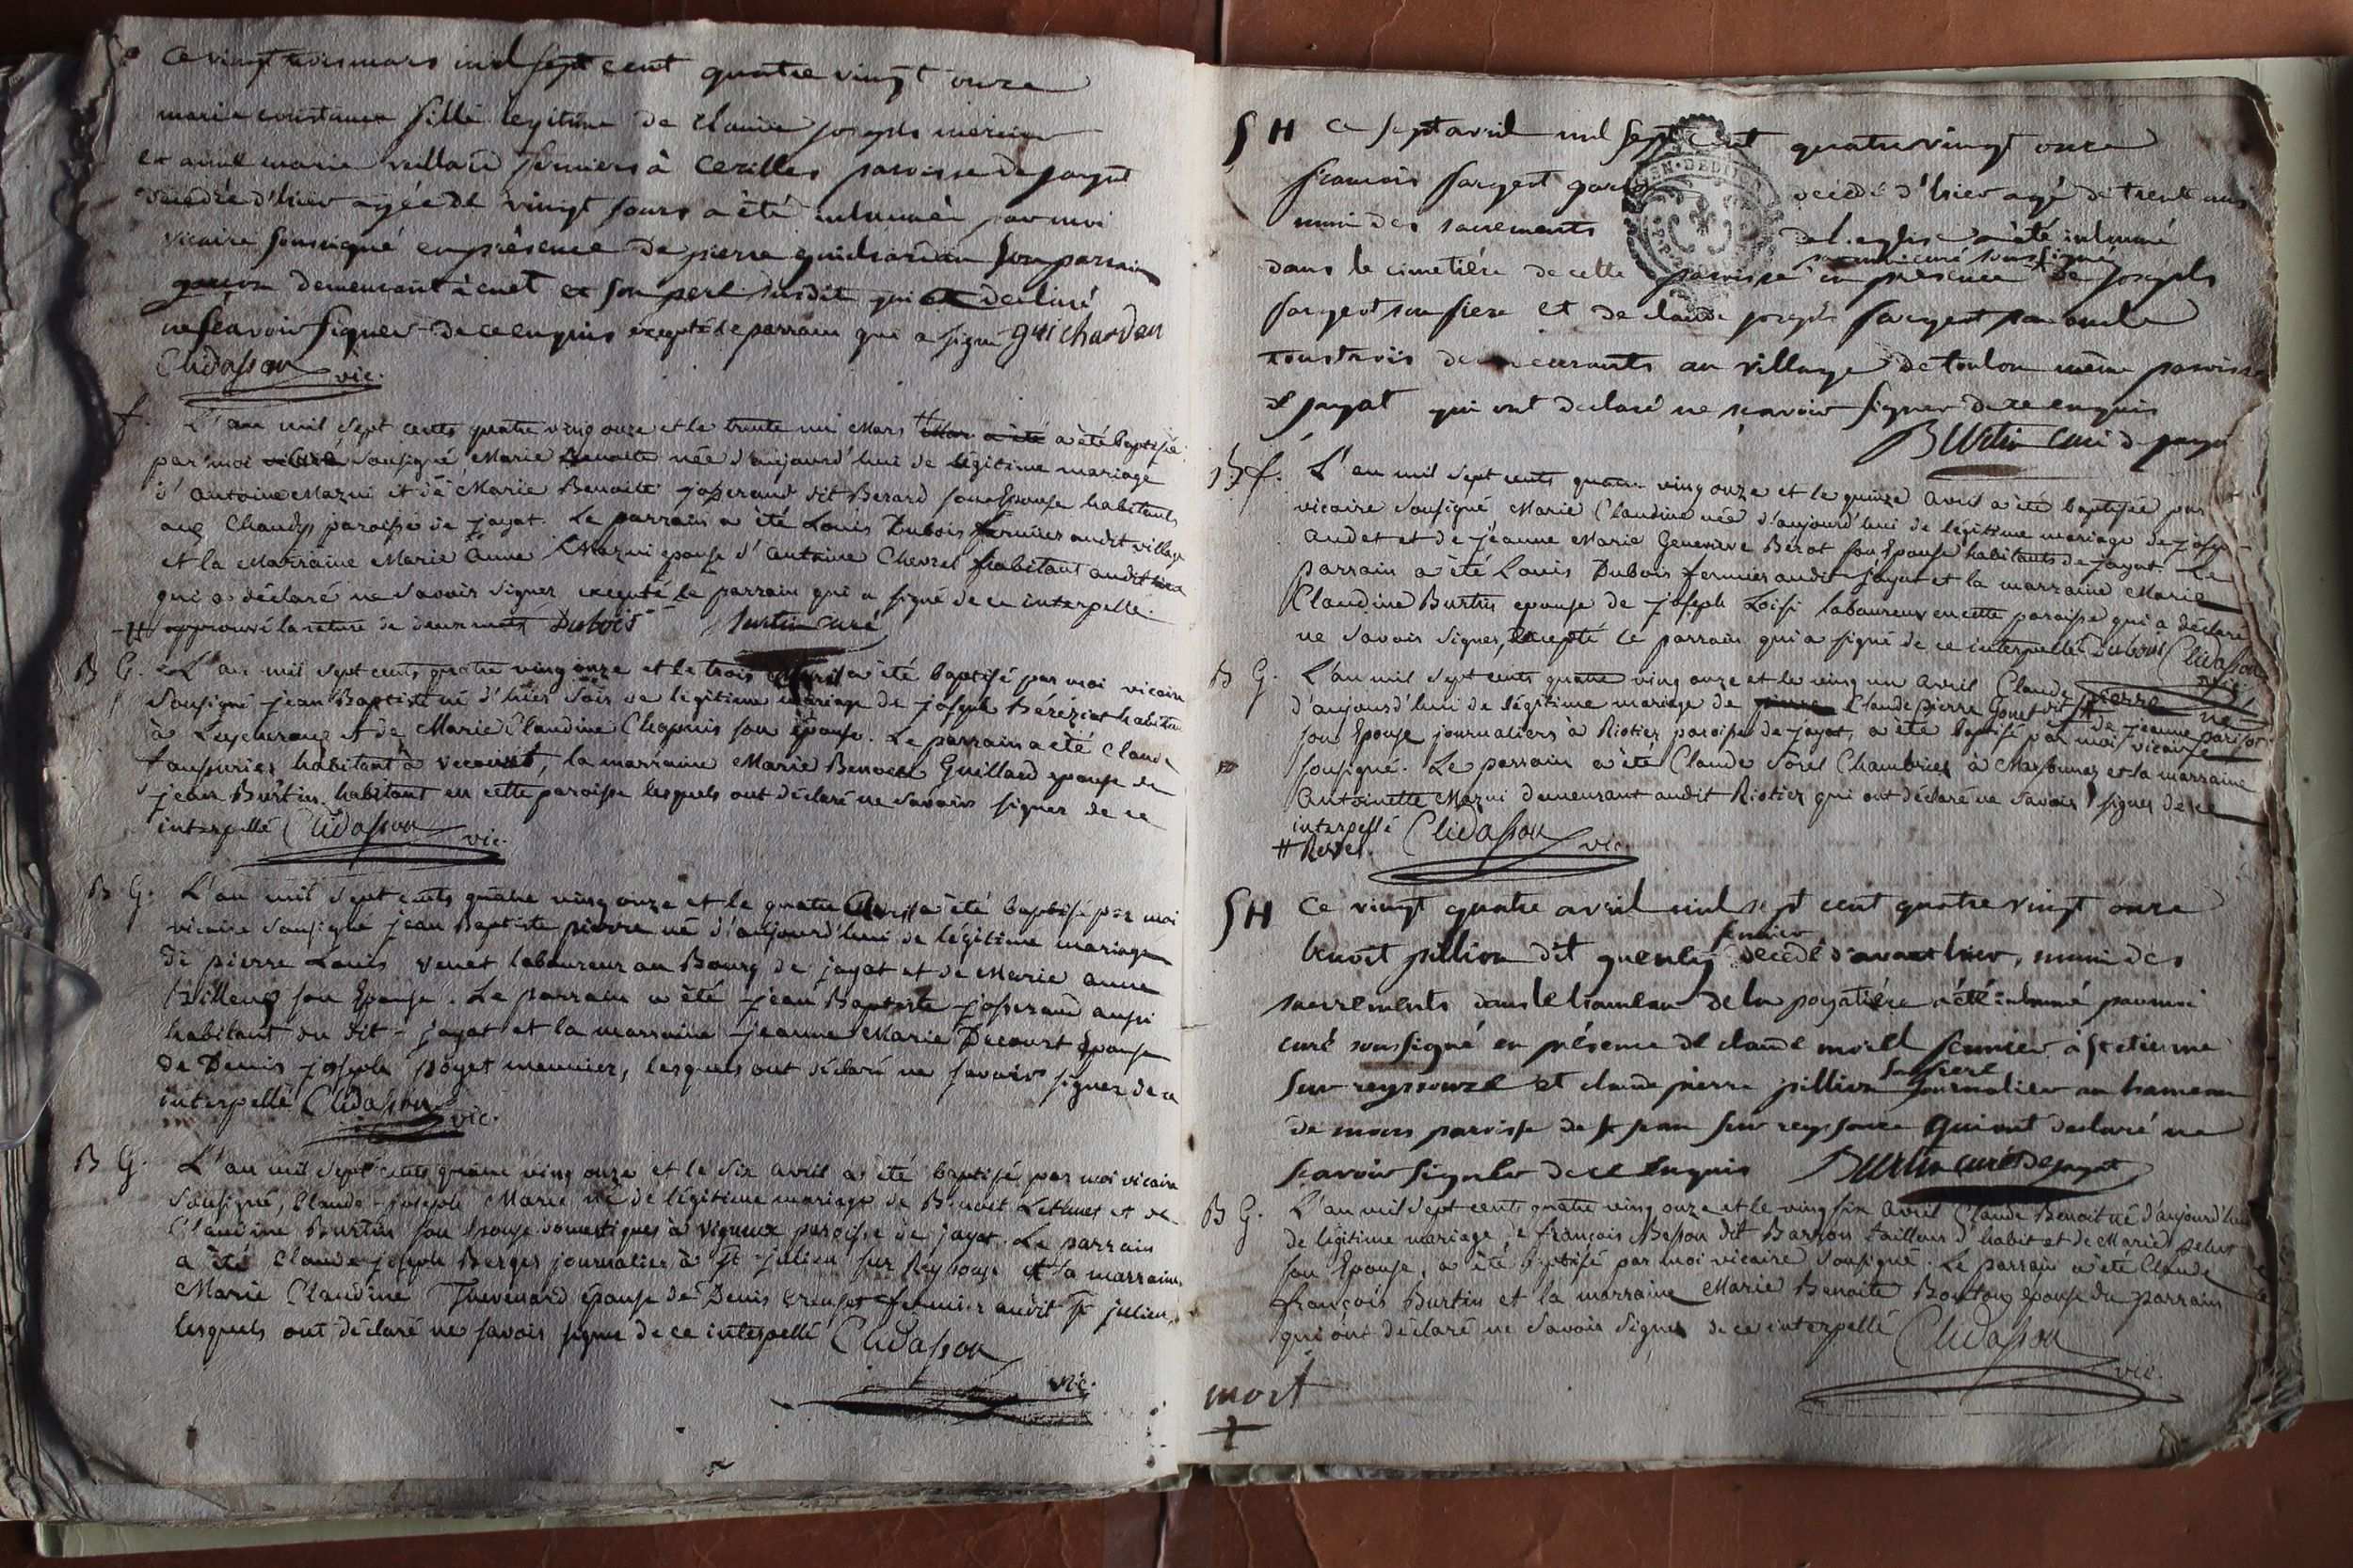 Ce vingt trois mars mil sept cent quatre vingt onze
marie constance fille legitime de claude joseph mercier
et anne marie vuillard fermiers à Cezilles paroisse de jayat
décédée d'hier agée de vingt jours a été inhumée par moi
vicaire soussigné en présence de pierre guichardan son parrain
garcon demeurant à cuet et son pere susdit qui a decliné
ne scavoir signer de ce enquis excepté le parrain qui a signé guichardan
Clidasson vic.
f. L'an mil sept cents quatre ving onze et le trente un Mars a été baptisée
par moi sousigné Marie Benoite née d'aujourd'hui de légitime mariage
d'antoine Mazui et de Marie Benoite josserand dit Berard son Epouse habitants
aux Chaudy paroisse de jayat. Le parrain a été Louis Dubois fermier audit village
et la Marraine Marie Anne Mazui epouse d'antoine Chevrel habitant audit
qui a déclaré ne Savoir signer excepté le parrain qui a signé de ce interpelle.
# approuvé la rature de deux mots Dubois Burtin curé
B G. L'an mil sept cents quatre ving onze et le trois avril a été baptisé par moi vicaire
Sousigné jean Baptiste né d'hier Soir de legitime mariage de joseph Béréziat habitant
à et de Marie Claudine Chapuis son épouse. Le parrain a été Claude
habitant à vecourt, la marraine Marie Benoite Guillard epouse de
jean Burtin habitant en cette paroisse lesquels ont déclaré ne Savoir signer de ce
interpellé Clidasson vic.
B G. L'an mil sept cents quatre ving onze et le quatre Avril a été baptisé par moi
vicaire Sousigné jean Baptiste pierre né d'aujourd'hui de légitime mariage
de pierre Louis Venet laboureur au Bourg de jayat et de Marie anne
son Epouse. Le parrain a été jean Baptiste josserand aussi
habitant du dit jayat et la marraine jeanne Marie Decourt épouse
de Denis joseph poyet meunier, lesquels ont déclaré ne savoir signer de ce
interpellé Clidasson vic.
B G. L'an mil sept cents quatre ving onze et le six avril a été baptisé par moi vicaire
Sousigné, Claude joseph Marie né de légitime mariage de Benoit Lethuet et de
Claudine Burtin son Epouse domestiques à vigneux paroisse de jayat. Le parrain
a été Claude joseph Berger journalier à St julien sur Reyssouse et la marraine
Marie Claudine Thevenard épouse de Denis Creuset fermier audit St julien,
lesquels ont déclaré ne savoir signer de ce interpellé Clidasson
vic.
SH ce sept avril mil sept cent quatre vingt onze
francois sargent garcon décédé d'hier agé de trente ans
muni des sacrements de l'eglise a été inhumé
dans le cimetière de cette paroisse par moi curé soussigné en présence de joseph
sargent son frere et de claude joseph sargent son oncle
tous trois demeurants au village de toulon même paroisse
de jayat qui ont declaré ne scavoir signer de ce enquis
Burtin curé de jayat
B f. L'an mil sept cents quatre ving onze et le quinze avril a été baptisée par
vicaire sousigné Marie Claudine née d'aujourd'hui de légitime mariage de joseph
Audet et de jeanne Marie Genevieve Bérot son Epouse habitants de jayat. Le
parrain a été Louis Dubois fermier audit jayat et la marraine Marie
Claudine Burtin epouse de joseph Loisi laboureur en cette paroisse qui a déclaré
ne Savoir signer, excepté le parrain qui a signé de ce interpellé Dubois Clidasson
vic.
B G. L'an mil sept cents quatre ving onze et le ving un avril Claude pierre né
d'aujourd'hui de légitime mariage de Claude pierre Gonet dit # et de jeanne parisot
son Epouse journaliers à Riotier paroisse de jayat, a été baptisé par moi vicaire
sousigné. Le parrain a été Claude Sorel Chambrier à Marsonnas et la marraine
Antoinette Mazui demeurant audit Riotier qui ont déclaré ne Savoir signer de ce
interpellé Clidasson vic.
# Revel.
SH Ce vingt quatre avril mil sept cent quatre vingt onze
benoit pillion dit guenly fermier décédé d'avant hier, muni des
sacrements dans le hameau de la poyatière a été inhumé par moi
curé soussigné en présence de claude morel fermier à st etienne
sur reyssouze et claude pierre pillion son frere journalier au hameau
de mons paroisse de st jean sur reyssouze qui ont declaré ne
scavoir signer de ce enquis Burtin curé de jayat
B G. L'an mil sept cents quatre ving onze et le ving six avril Claude Benoit né d'aujourd'hui
de légitime mariage de françois Besson dit Barron tailleur d'habit et de Marie
son Epouse, a été baptisé par moi vicaire sousigné. Le parrain a été Claude
françois Burtin et la marraine Marie Benoite Bouton epouse du parrain
qui ont déclaré ne Savoir signer de ce interpellé Clidasson
vic.
mort